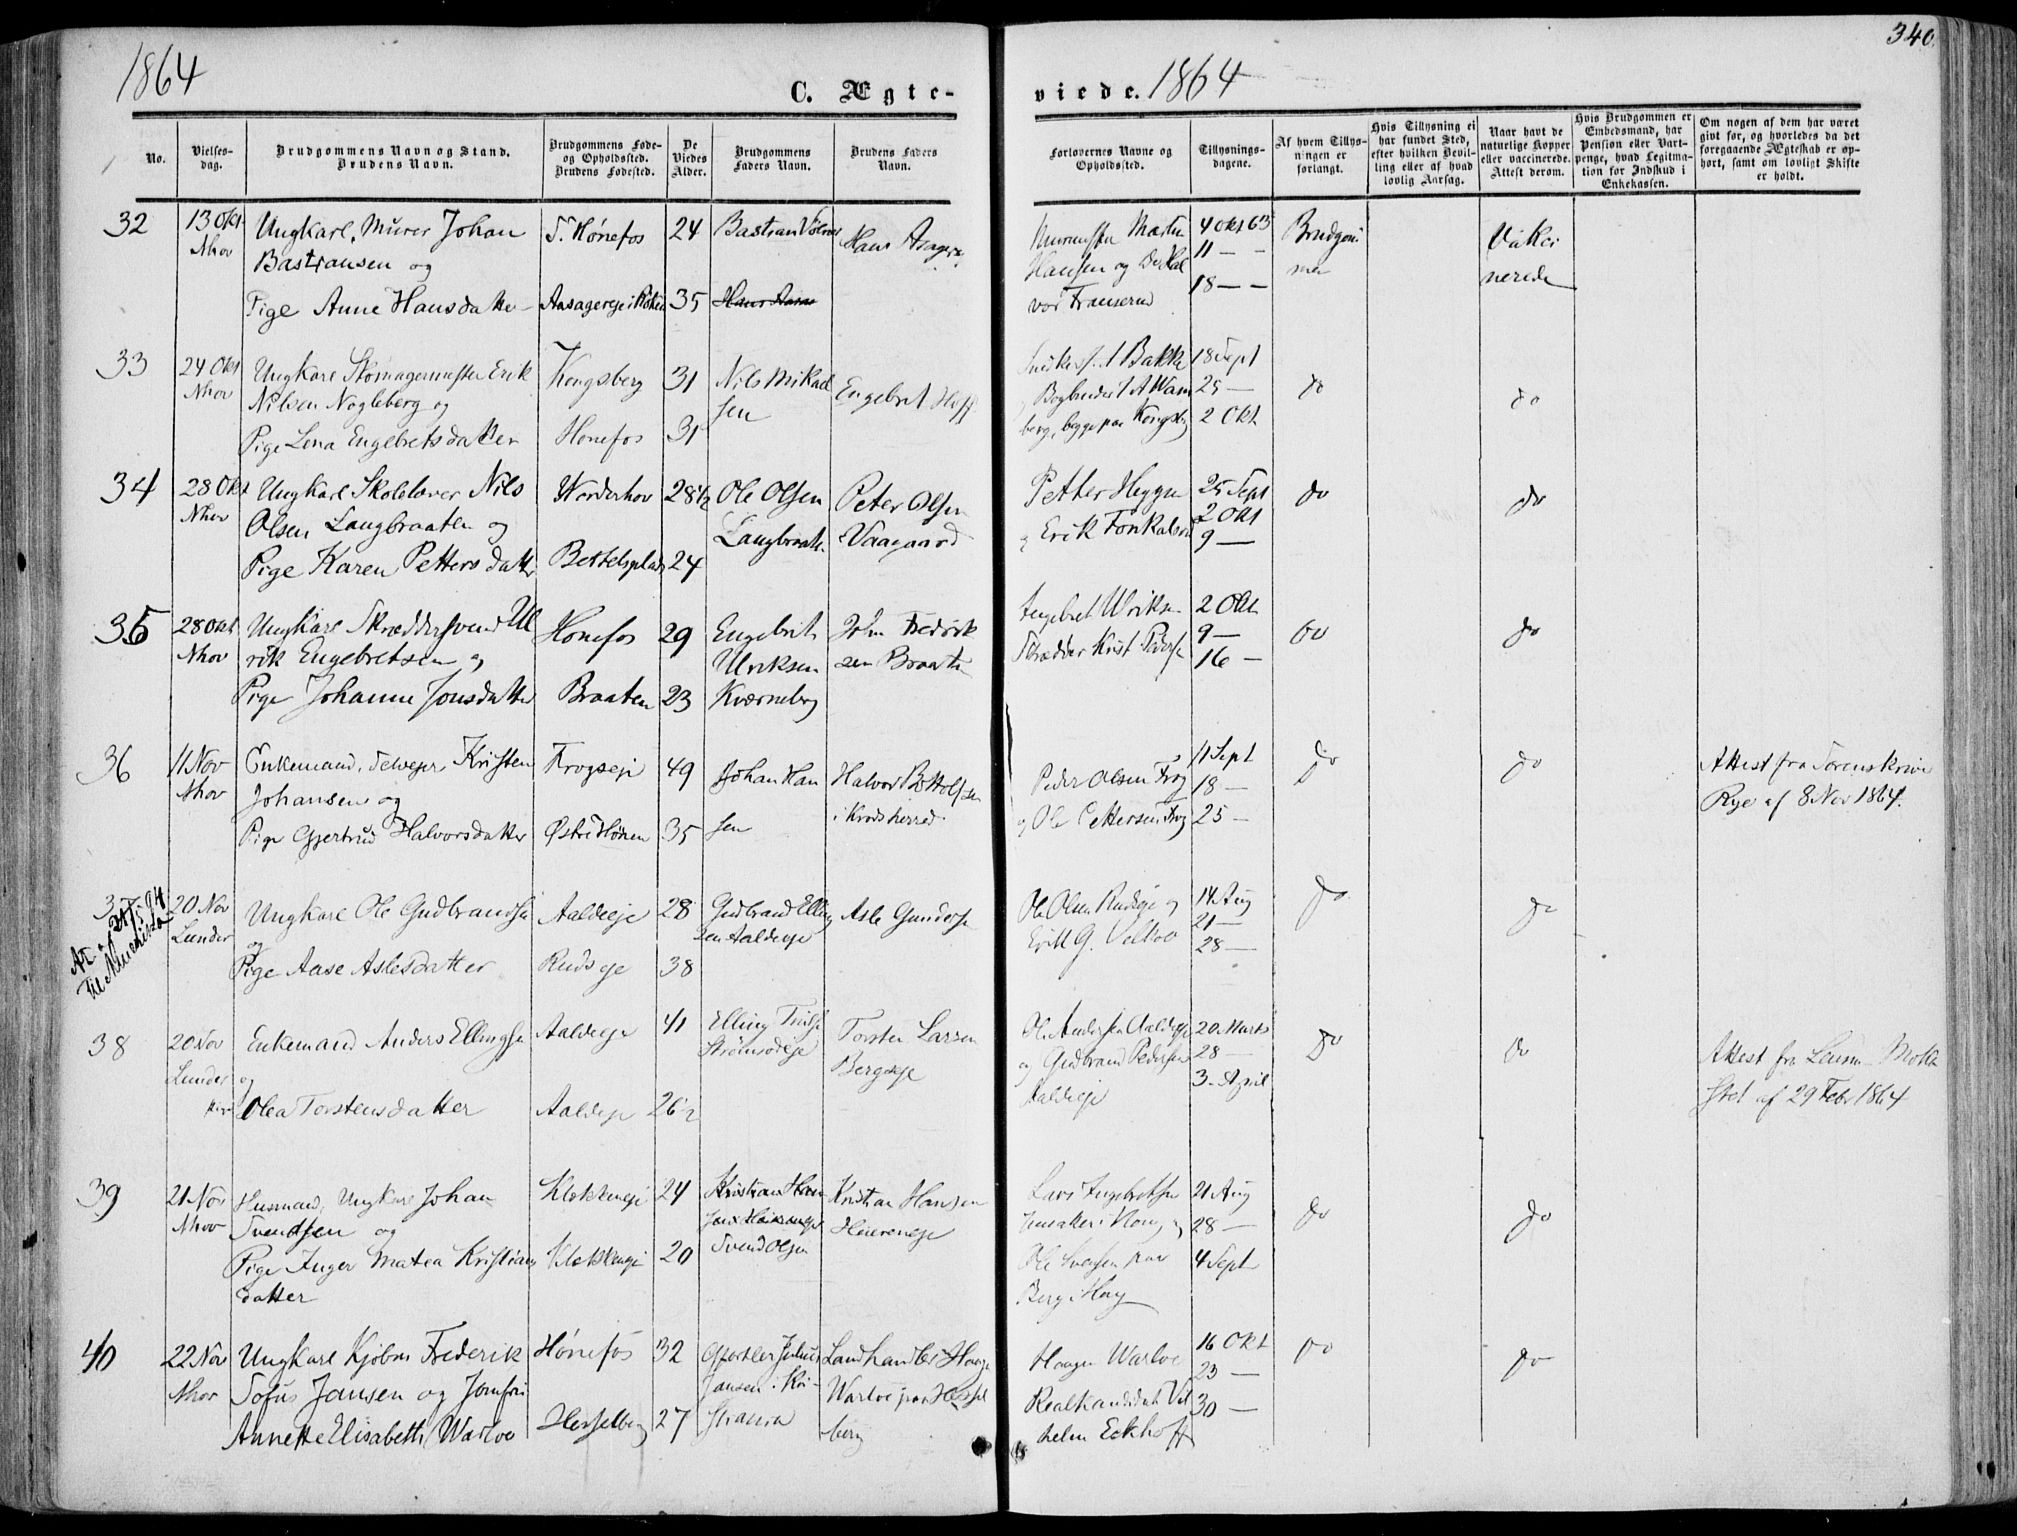 1864
C. Ægte-
No.
Vielses-
dag.
Brudgommens Navn og Stand.
Brudens Navn.
Brudgommens Føde-
og Opholdssted.
Brudens Fødested.
De
Viedes
Alder.
Brudgommens
Faders Navn.
Brudens Faders
Navn.
32
13 Okt
Nhov
Ungkarl, Murer Johan
Bastiansen og
Pige Anne Hansdatter
S. Hønefos
24
35
Bastian
Hans
33
24 Okt
Nhov
Ungkarl Skomagermester Erik
Nilsen Nogleberg og
Pige Lena Engebretsdatter
Kongsberg
Honefos
31
31
Nils Mikael
sen
Engebret Hoff
34
28 Okt
Nhov
Ungkarl Skolelærer Nils
Olsen Langbraaten og
Pige Karen Pettersdatter
Norderhov
Bettelsplads
28½
24
Ole Olsen
Langbraaten
Peter Olsen
Vaagaard
35
28 Okt
Nhov
Ungkarl Skræddersvend Ul
rik Engebretsen og
Pige Johanne Jonsdatter
Honefos
Braaten
29
23
Engebret
Ulriksen
Kværneberg
John Fredrik
sen Braaten
36
11 Nov
Nhov
Enkemand, Selveier Kristen
Johansen og
Pige Gjertrud Halvorsdatter
Frogseje
Østre Hønen
49
35
Johan Han
sen
Halvor Bottolfsen
i Krødsherred.
37
20 Nov
Lunder
Ungkarl Ole Gudbrandsen
og
Pige Aase Aslesdatter
Aaldeeje
Rudseje
28
38
Gudbrand Elling
sen Aaldeeje
Asle Gundersen
38
20 Nov
Lunder
Enkemand Anders Ellingsen
og
Olea Torstensdatter
Aaldeeje
Aaldeeje
41
26½
Elling
Strømsodeje
Torsten Larsen
Bergseje
39
21 Nov
Nhov
Husmand, Ungkarl Johan
Svendsen og
Pige Inger Matea Kristians
datter
Klækkeneje
Klækkeneje
24
20
Svend Olsen
Kristian Hansen
40
22 Nov
Nhov
Ungkarl Kjøbm Frederik
Sofus Jansen og Jomfru
Annette Elisabeth Warloe
Hønefos
Hesselberg
32
27
Julius
Jansen i Kri-
stiania
Landhandler Haage
Warloe paa Hessel
berg
1864
340.
viede.
Forlovernes Navne og
Opholdssted.
Tillysnings-
dagene.
Af hvem Tillys-
ningen er
forlangt.
Hvis Tillysning ei
har fundet Sted,
efter hvilken Bevil-
ling eller af hvad
lovlig Aarsag.
Naar havt de
naturlige Kopper
eller vaccinerede.
Attest derom.
Hvis Brudgommen er
Embedsmand, har
Pension eller Vart-
penge, hvad Legitima-
tion for Indskud i
Enkekassen.
Om nogen af dem har været
gift før, og hvorledes da det
foregaaende Ægteskab er op-
hørt, samt om lovligt Skifte
er holdt.
Hansen og
4 Okt 63
11 — —
18 — —
Brudgom
men
Vakci
nerede
18 Sept
25 —
2 Okt
do
do
Petter Heggen
og Erik
25 Sept
2 Okt
9 —
do
do
Engebret Ulriksen
Skrædder Krist Pedersen
2 Okt
9 —
16 —
do
do
Peder Olsen Frog
og Ole Pettersen Frog
11 Sept
18 —
25 —
do
do
Attest fra Sorenskriver
Rye af 8 Nov 1864.
Ole Olsen Rudseje og
Erik G. Velkov
14 Aug
21 —
28 —
do
do
Ole Andersen Aaldeeje
og Gudbrand Pedersen
Aaldeeje
20 Marts
28 —
3 April
do
do
Attest fra
af 29 Febr 1864
Lars Engebretsen
Ole Svensen paa
Berg i Houg
21 Aug
28 —
4 Sept
do
do
Haagen Warloe
Realkandidat Vil
helm Eckhoff
16 Okt
23 —
30 —
do
do